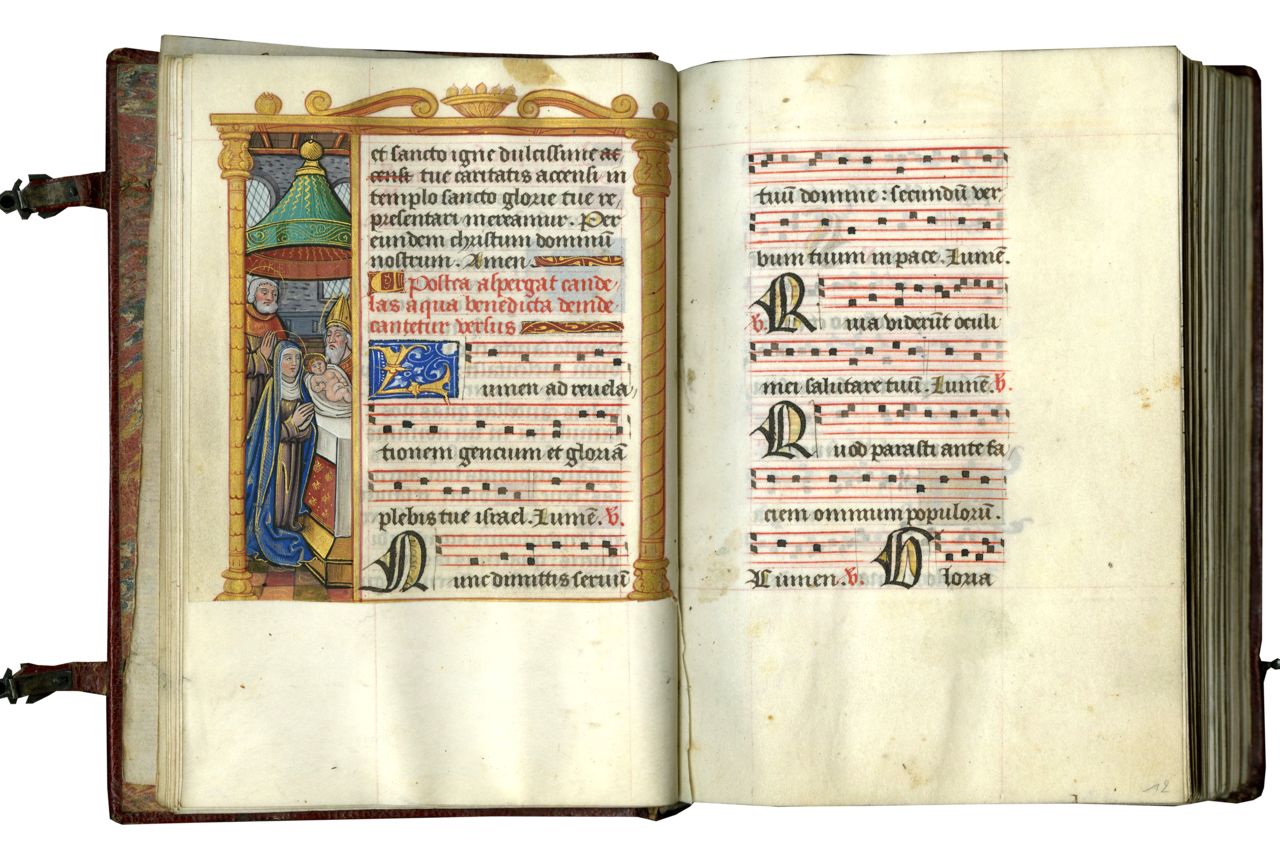 et sancto igne dulcissime ac
censi tue caritatis accensi in
templo sancto glorie tue re
presentari mereamur. Per
eundem christum dominū
nostrum. Amen.
Postea aspergat cande
las aqua benedicta deinde
cantetur versus
Lumen ad revela
tionem gencium et gloriā
plebis tue israel. Lumē. v.
Nunc dimittis servū
tuū domine: secundū ver
bum tuum in pace. Lumē.
v. Quia viderūt oculi
mei salutare tuū. Lumē. v.
Quod parasti ante fa
ciem omnium populorū.
Lumen. v. Gloria
12